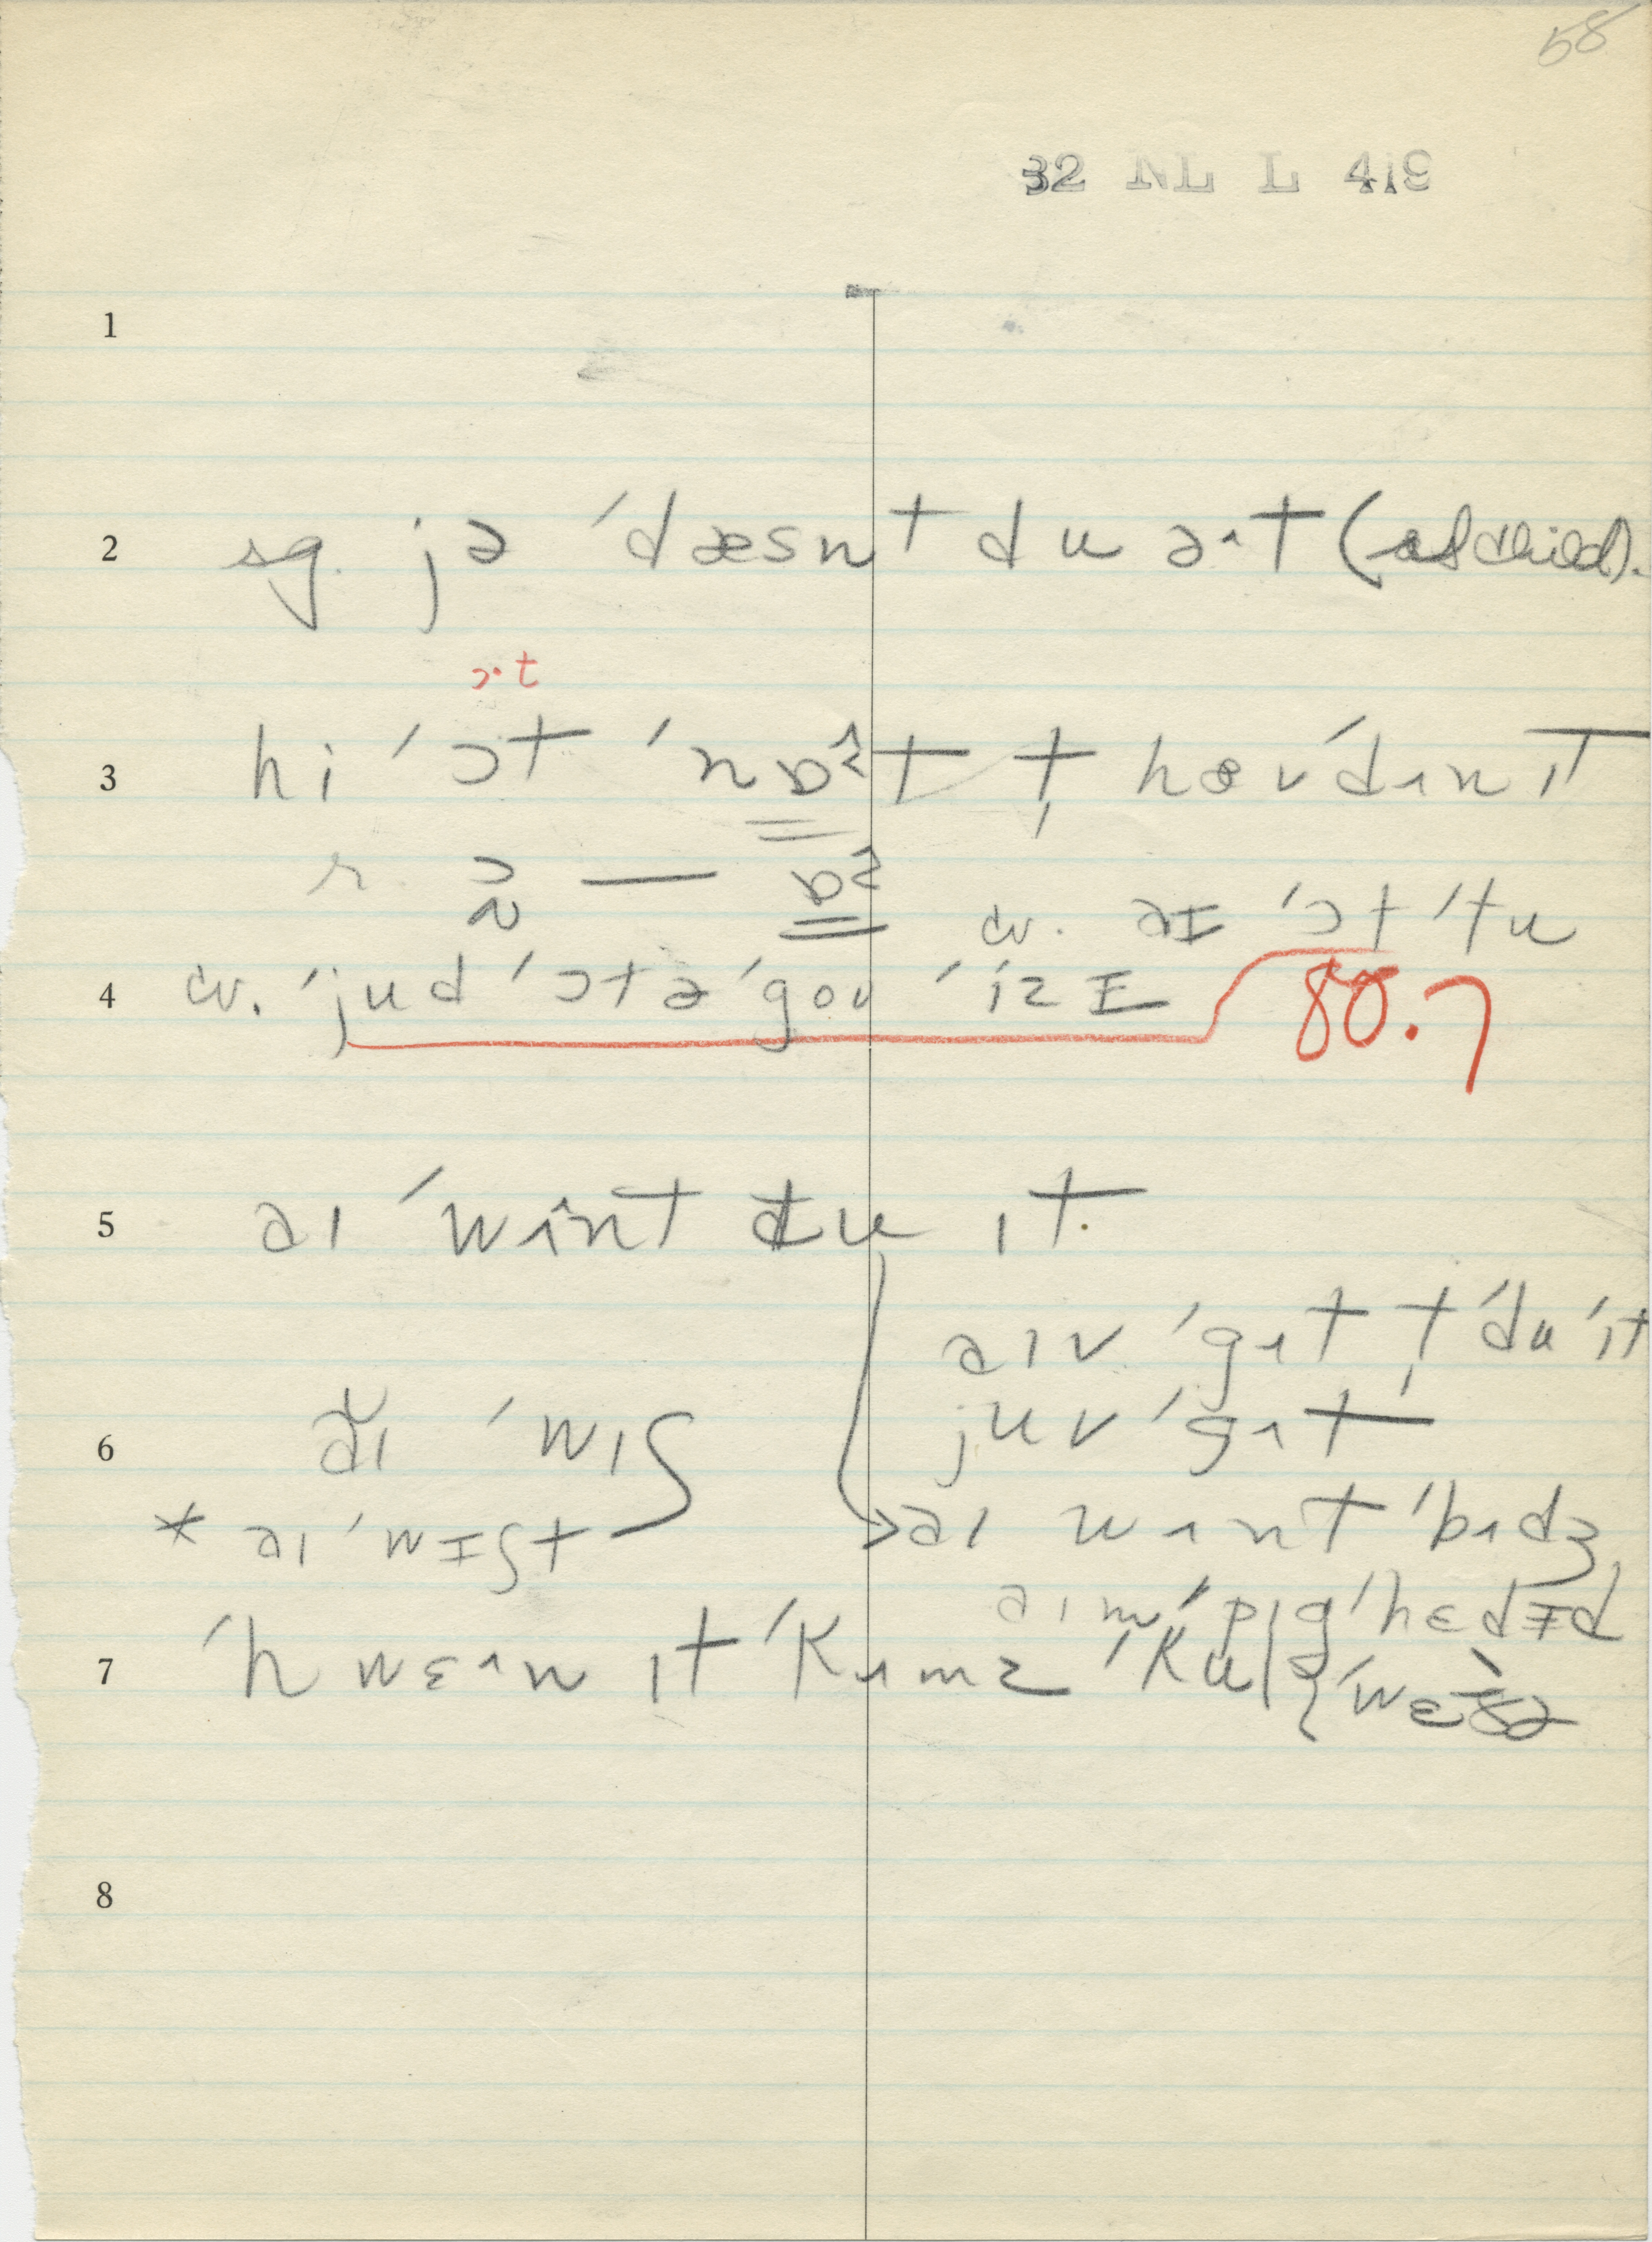 58
32 NL L 419
1
2 sg. jə ˈdæsnt du ə·t (of child).
ɔ·t
3 hi ˈɔt ˈnɒ^t t̩ hævdɘn ɪt
r. ɔ̰ — ɒ^
cv. aɪ ˈɔt ˈtu
4 cv. ˈjud ˈɔtəˈgou ˈizɪ 80.7
5 aɪ ˈwɘnt du ɪt.
aɪv ˈgɘt t̩ ˈdu ˈɪt
6 ăɪ ˈwɪʃ juv ˈgɘt
* aɪ ˈwɪʃt aɪ wɘnt ˈbɘdʒ
aɪm ˈpɪgˈhɛdɪd
7 ˈhwɛɘn ɪt ˈkɘmz ˈkul
8